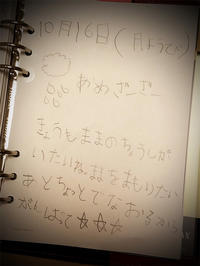 10月16日(月ようび)
あめざーざー
きょうもままのちょうしが
いたいね。ままをまもりたい
あとちょっとでなおるから
がんばって☆☆☆